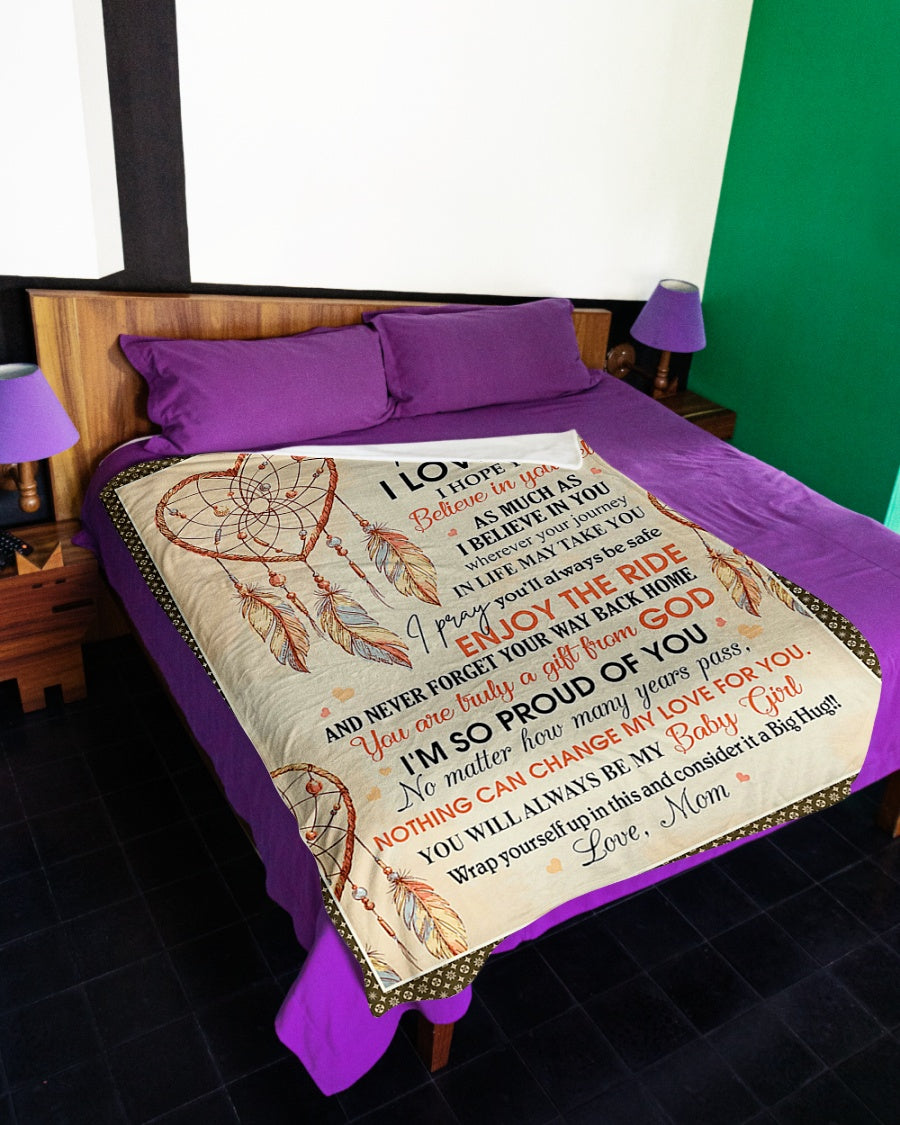 I LOV
I HOPE
Believe in you
AS MUCH AS
I BELIEVE IN YOU
wherever your journey
IN LIFE MAY TAKE YOU
I pray you'll always be safe
ENJOY THE RIDE
AND NEVER FORGET YOUR WAY BACK HOME
You are truly a gift from GOD
I'M SO PROUD OF YOU
No matter how many years pass,
NOTHING CAN CHANGE MY LOVE FOR YOU.
YOU WILL ALWAYS BE MY Baby Girl
Wrap yourself up in this and consider it a Big Hug!!
Love, Mom